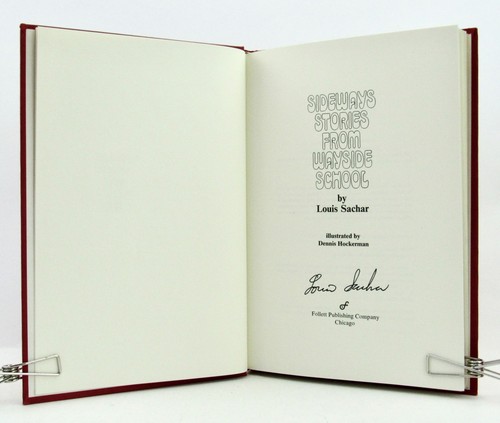 SIDEWAYS
STORIES
FROM
WAYSIDE
SCHOOL
by
Louis Sachar
illustrated by
Dennis Hockerman
Louis Sachar
Follett Publishing Company
Chicago